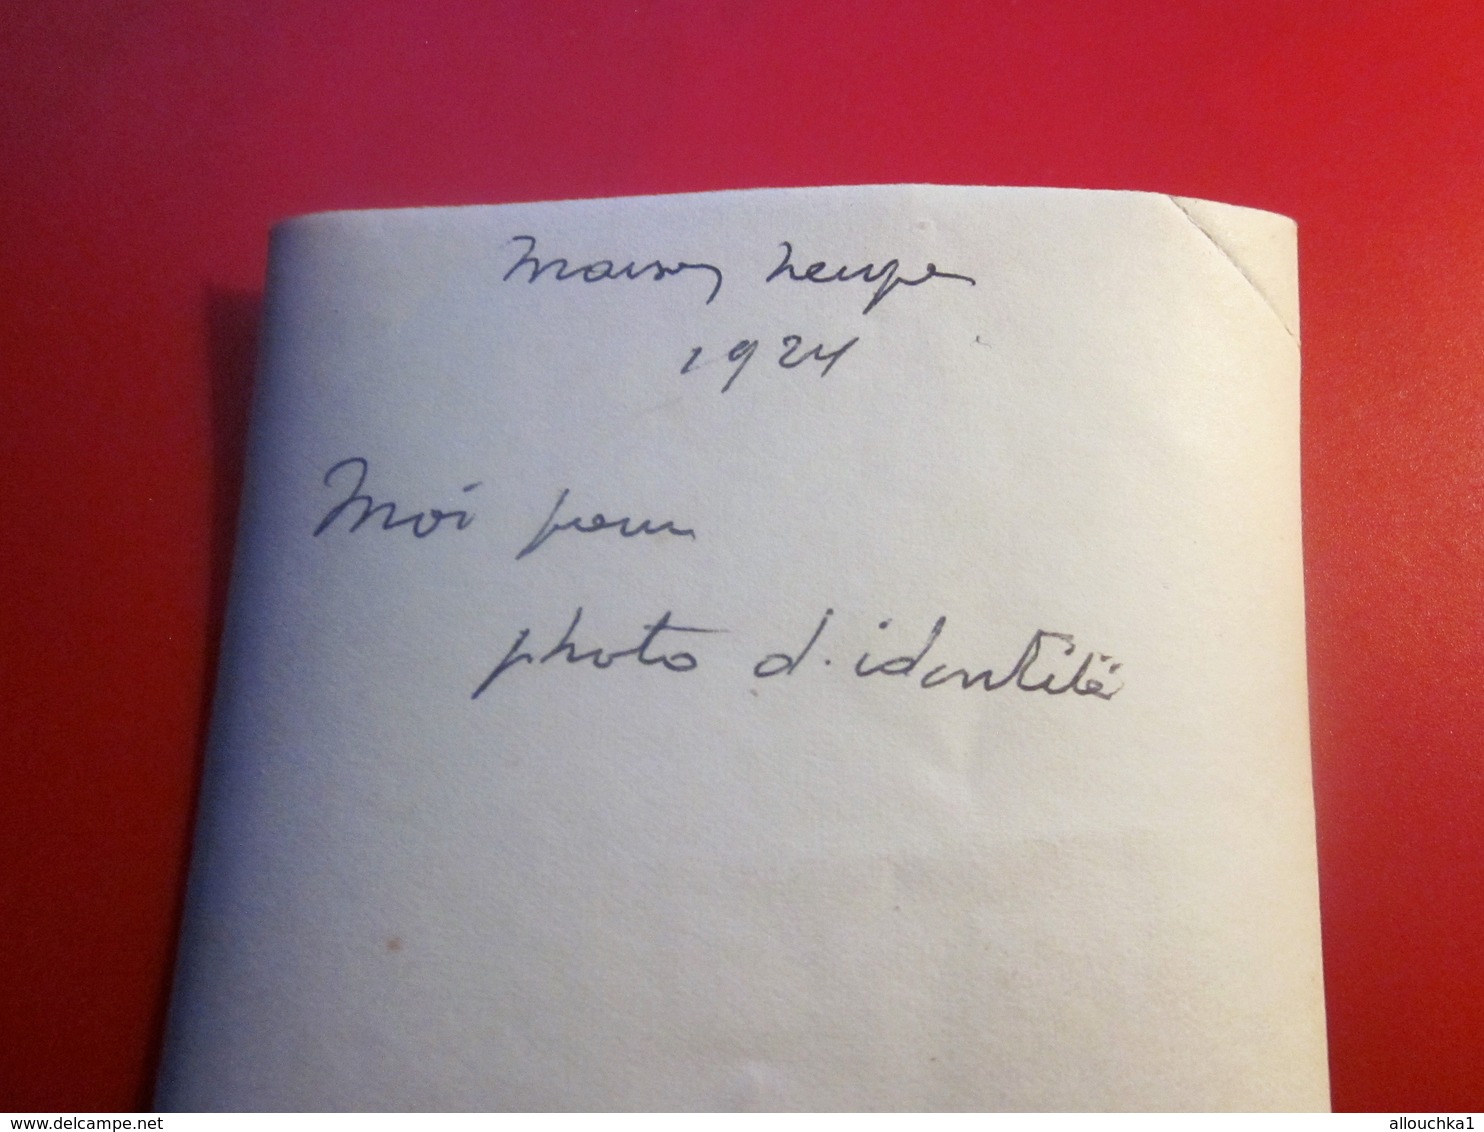 Maison
1924
Moi pour
photo d'identité
www.delcampe.net
allouchka1